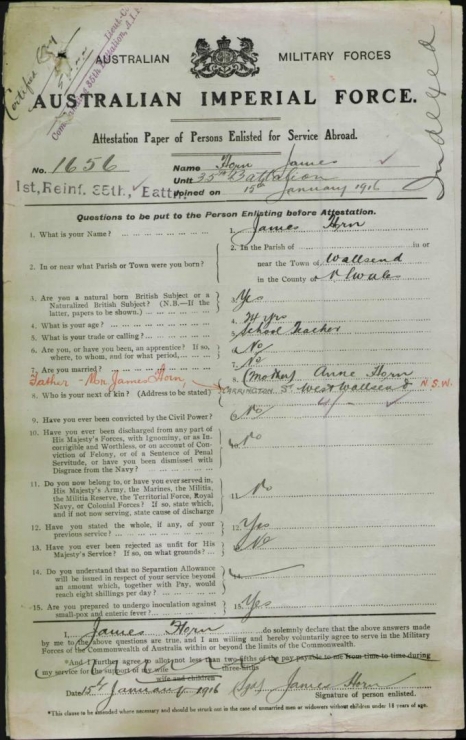 Certified Copy
Lieut-C.
Commanding 35th Battalion, A.I.F.
Indexed
AUSTRALIAN MILITARY FORCES
AUSTRALIAN IMPERIAL FORCE.
Attestation Paper of Persons Enlisted for Service Abroad.
No. 1656 Name Horn James
Unit 35th Battalion
1st, Reinf. 35th, Battn. Joined on 15th January 1916
Questions to be put to the Person Enlisting before Attestation.
1. What is your Name? 1. James Horn
2. In or near what Parish or Town were you born? 2. In the Parish of in or
near the Town of Wallsend
in the County of N S Wales
3. Are you a natural born British Subject or a
Naturalized British Subject? (N.B.—If the
latter, papers to be shown.) 3. Yes
4. What is your age? 4. 24 yrs
5. What is your trade or calling? 5. School Teacher
6. Are you, or have you been, an apprentice? If so,
where, to whom, and for what period, 6. No
7. Are you married? 7. No
Father - Mr. James Horn,
8. Who is your next of kin? (Address to be stated) 8. (Mother) Anne Horn
CORRINGTON St West Wallsend N.S.W.
9. Have you ever been convicted by the Civil Power? 9. No
10. Have you ever been discharged from any part of
His Majesty's Forces, with Ignominy, or as In-
corrigible and Worthless, or on account of Con-
viction of Felony, or of a Sentence of Penal
Servitude, or have you been dismissed with
Disgrace from the Navy? 10. No
11. Do you now belong to, or have you ever served in,
His Majesty's Army, the Marines, the Militia,
the Militia Reserve, the Territorial Force, Royal
Navy, or Colonial Forces? If so, state which,
and if not now serving, state cause of discharge 11. No
12. Have you stated the whole, if any, of your
previous service? 12. Yes
13. Have you ever been rejected as unfit for His
Majesty's Service? If so, on what grounds? 13. No
14. Do you understand that no Separation Allowance
will be issued in respect of your service beyond
an amount which, together with Pay, would
reach eight shillings per day? 14.
15. Are you prepared to undergo inoculation against
small-pox and enteric fever? 15. Yes
I, James Horn do solemnly declare that the above answers made
by me to the above questions are true, and I am willing and hereby voluntarily agree to serve in the Military
Forces of the Commonwealth of Australia within or beyond the limits of the Commonwealth.
*And I further agree to allot not less than two-fifths of the pay payable to me from time to time during
three-fifths
my service for the support of my wife
wife and children
Date 15th January 1916 (Sgd) James Horn
Signature of person enlisted.
*This clause to be amended where necessary and should be struck out in the case of unmarried men or widowers without children under 18 years of age.